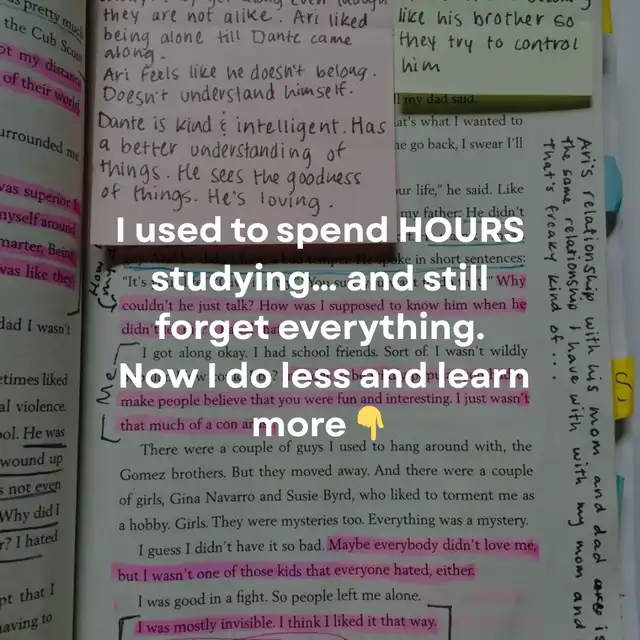 they are not alike. Ari liked
being alone till Dante came
along.
Ari feels like he doesn't belong.
Doesn't understand himself.
Dante is kind & intelligent. Has
a better understanding of
things. He sees the goodness
of things. He's loving.
like his brother so
they try to control
him
I used to spend HOURS
studying... and still
forget everything.
Now I do less and learn
more 👇
pretty much
the Cub Scou
my distanc
of their world
urrounded me
was superior
myself around
marter. Being
was like they
dad I wasn't
etimes liked
al violence.
ool. He was
wound up
s not even
Why did I
r? I hated
pt that I
aving to
my dad said.
at's what I wanted to
he go back, I swear I'll
ur life," he said. Like
my father: He didn't
spoke in short sentences:
"It's
Why
couldn't he just talk? How was I supposed to know him when he
didn't
I got along okay. I had school friends. Sort of. I wasn't wildly
make people believe that you were fun and interesting. I just wasn't
that much of a con
There were a couple of guys I used to hang around with, the
Gomez brothers. But they moved away. And there were a couple
of girls, Gina Navarro and Susie Byrd, who liked to torment me as
a hobby. Girls. They were mysteries too. Everything was a mystery.
I guess I didn't have it so bad. Maybe everybody didn't love me,
but I wasn't one of those kids that everyone hated, either.
I was good in a fight. So people left me alone.
I was mostly invisible. I think I liked it that way.
Me
Ari's relationship with his mom and dad is
the same relationship I have with my mom and
That's freaky kind of...